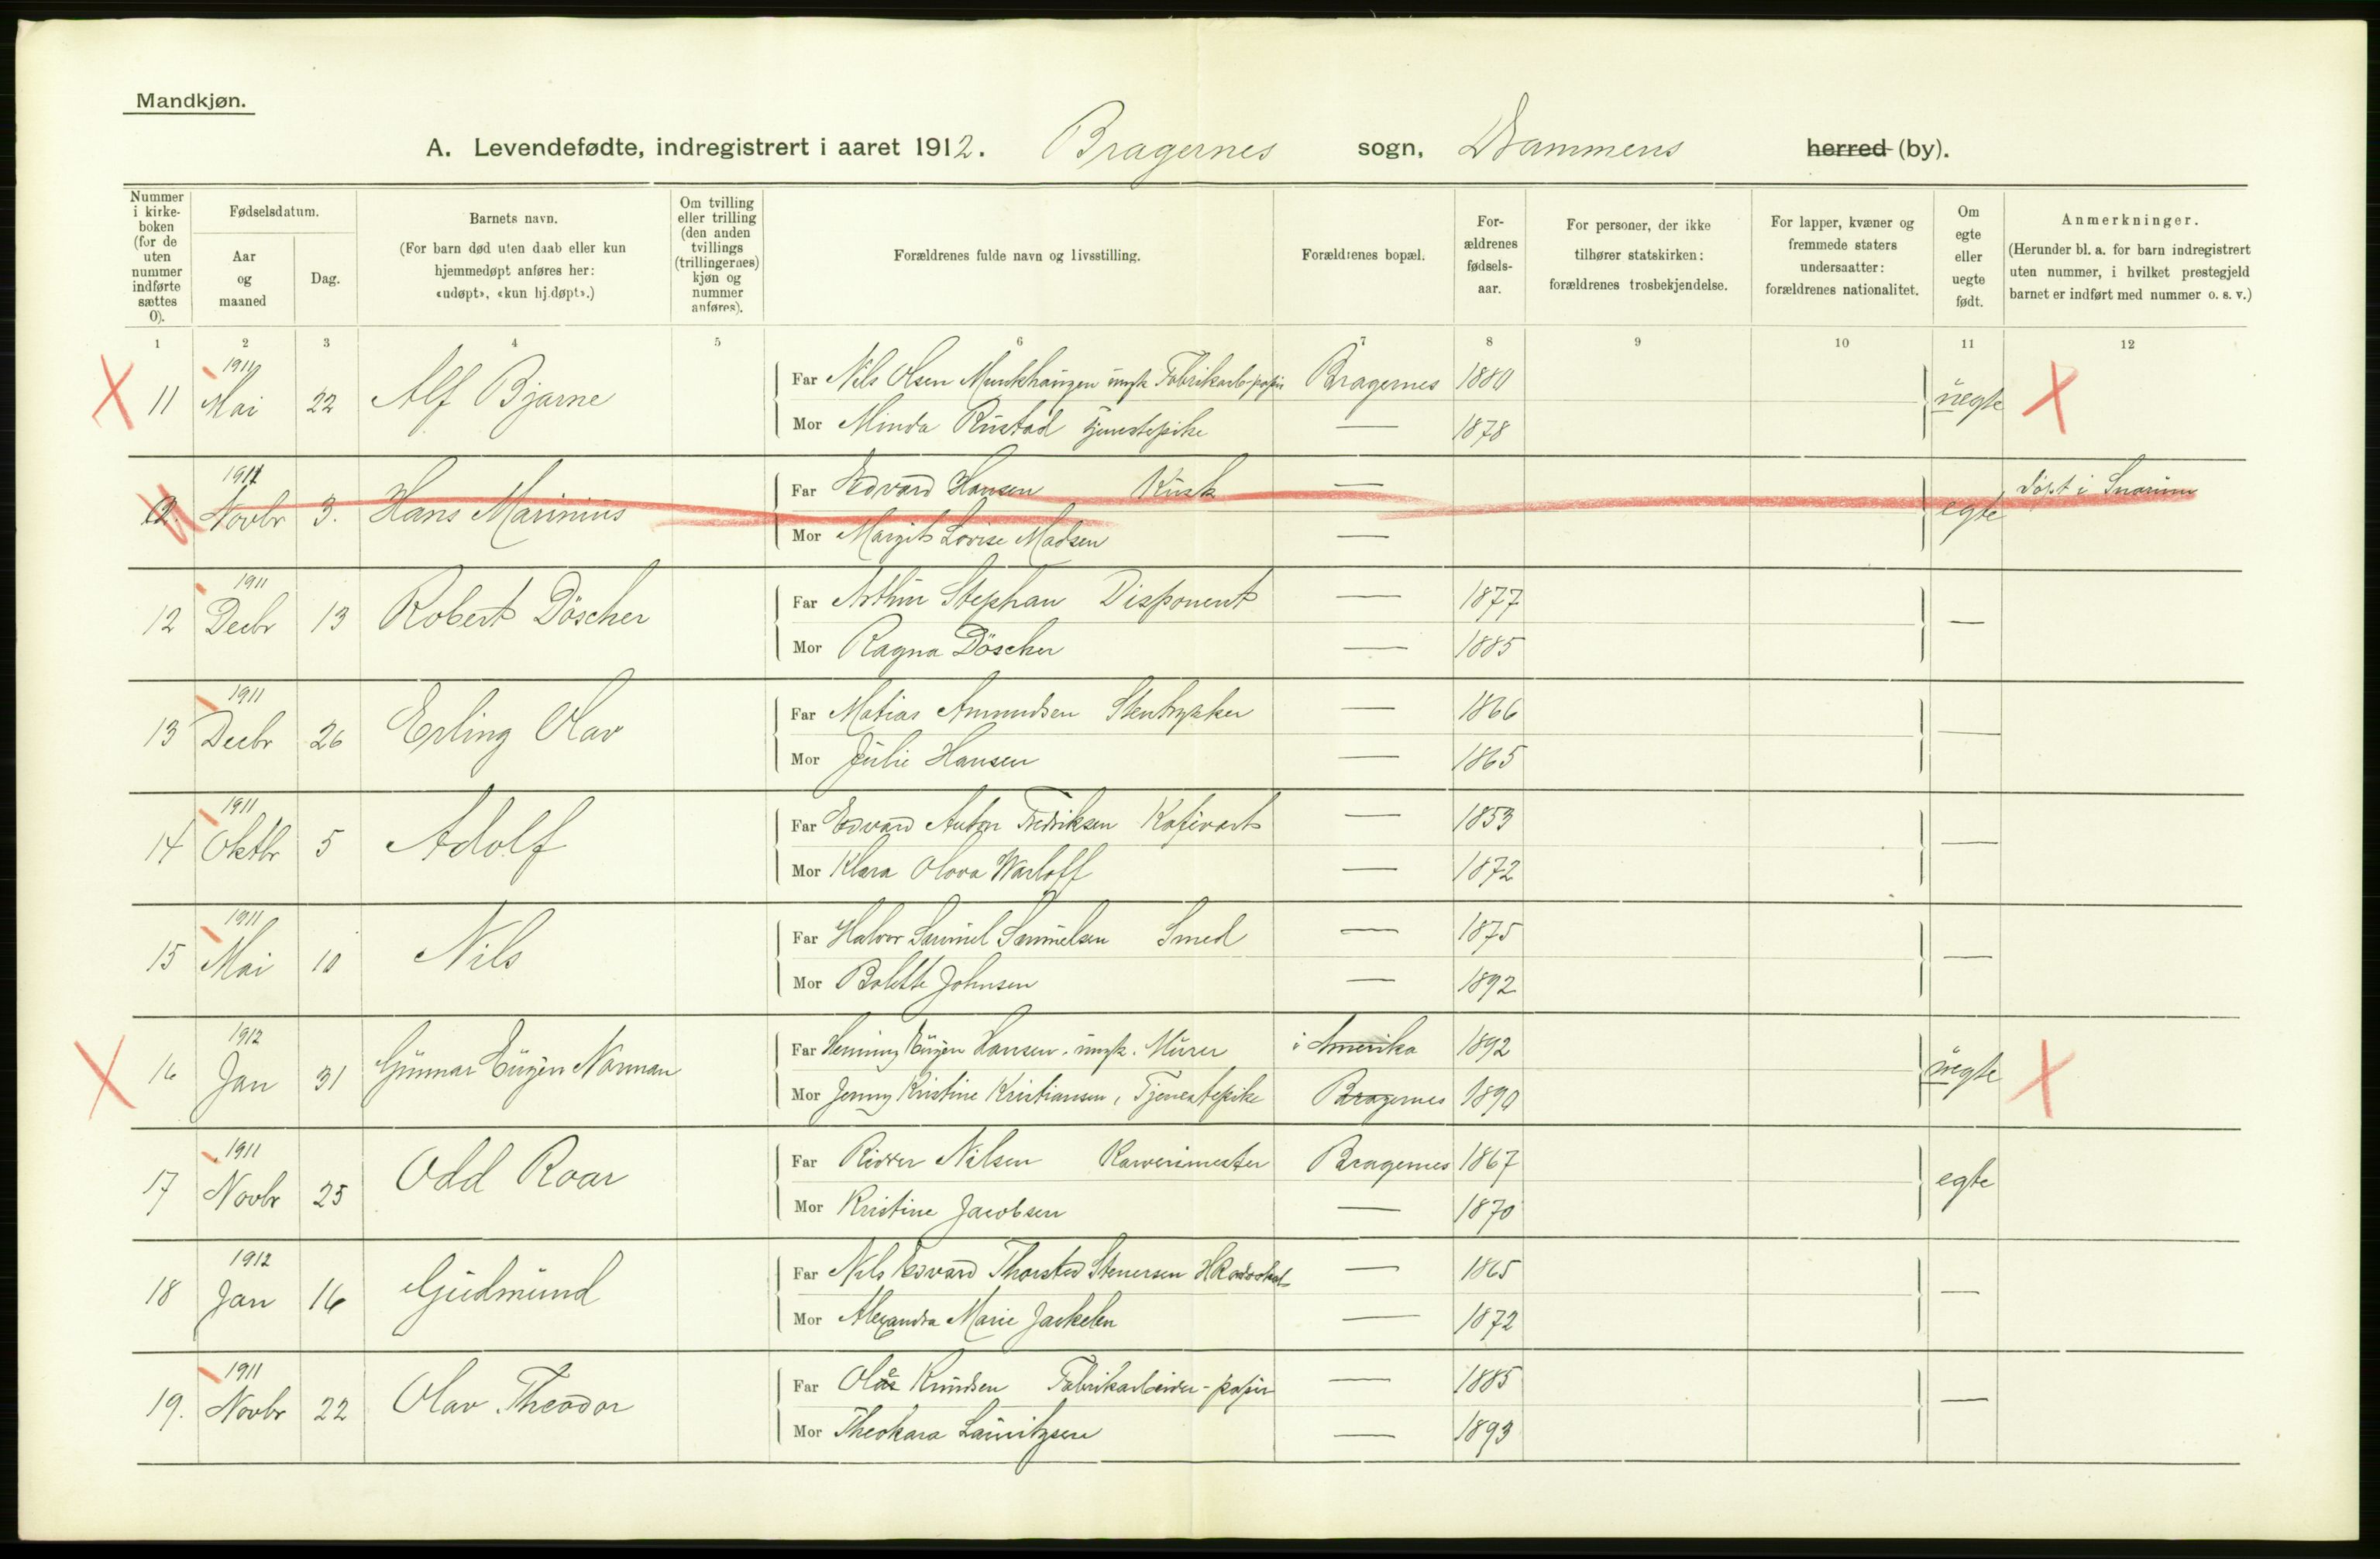 Mandkjøn.
A. Levendefødte, indregistrert i aaret 1912. Bragernes sogn, Drammens herred (by).
Nummer i kirke- boken (for de uten nummer indførte sættes 0).
Fødselsdatum.
Aar og maaned
Dag.
Barnets navn.
(For barn død uten daab eller kun hjemmedøpt anføres her: «udøpt», «kun hj.døpt».)
Om tvilling eller trilling (den anden tvillings (trillingernes) kjøn og nummer anføres).
Forældrenes fulde navn og livsstilling.
Forældrenes bopæl.
For- ældrenes fødsels- aar.
For personer, der ikke tilhører statskirken: forældrenes trosbekjendelse.
For lapper, kvæner og fremmede staters undersaatter: forældrenes nationalitet.
Om egte eller uegte født.
Anmerkninger.
(Herunder bl. a. for barn indregistrert uten nummer, i hvilket prestegjeld barnet er indført med nummer o. s. v.)
1 2 3 4 5 6 7 8 9 10 11 12
11 1911 Mai 22 Alf Bjarne Far Nils Olsen Munkhaugen ungk. Fabrikarb-papir Bragernes 1880 uegte
Mor Minda Rustad Tjenestepike — 1878
0. 1911 Novbr 3. Hans Marinius Far Edvard Hansen Kusk — egte døpt i Snarum
Mor Margit Lovise Madsen —
12 1911 Decbr 13 Robert Döscher Far Arthur Stephan Disponent — 1877 —
Mor Ragna Döscher — 1885
13 1911 Decbr 26 Erling Olav Far Matias Amundsen Stentrykker — 1866 —
Mor Julie Hansen — 1865
14 1911 Oktbr 5 Adolf Far Edvard Anton Fredriksen Kafévert — 1853 —
Mor Klara Olava Warloff — 1872
15 1911 Mai 10 Nils Far Halvor Samuel Samuelsen Smed — 1875 —
Mor Bolette Johnsen — 1892
16 1912 Jan 31 Gunnar Eugen Norman Far Henning Eugen Hansen. ungk. Murer i Amerika 1892 uegte
Mor Jenny Kristine Kristiansen, Tjenestepike Bragernes 1890
17 1911 Novbr 25 Odd Roar Far Reider Nilsen Bragernes 1867 egte
Mor Kristine Jacobsen — 1870
18 1912 Jan 16 Gudmund Far Nils Edvard Thorsted Stenersen — 1865 —
Mor Alexandra Marie Jackelen — 1872
19. 1911 Novbr 22 Olav Theodor Far Knudsen Fabrikarbeider-papir — 1885 —
Mor Theokara Lauritzsen — 1893